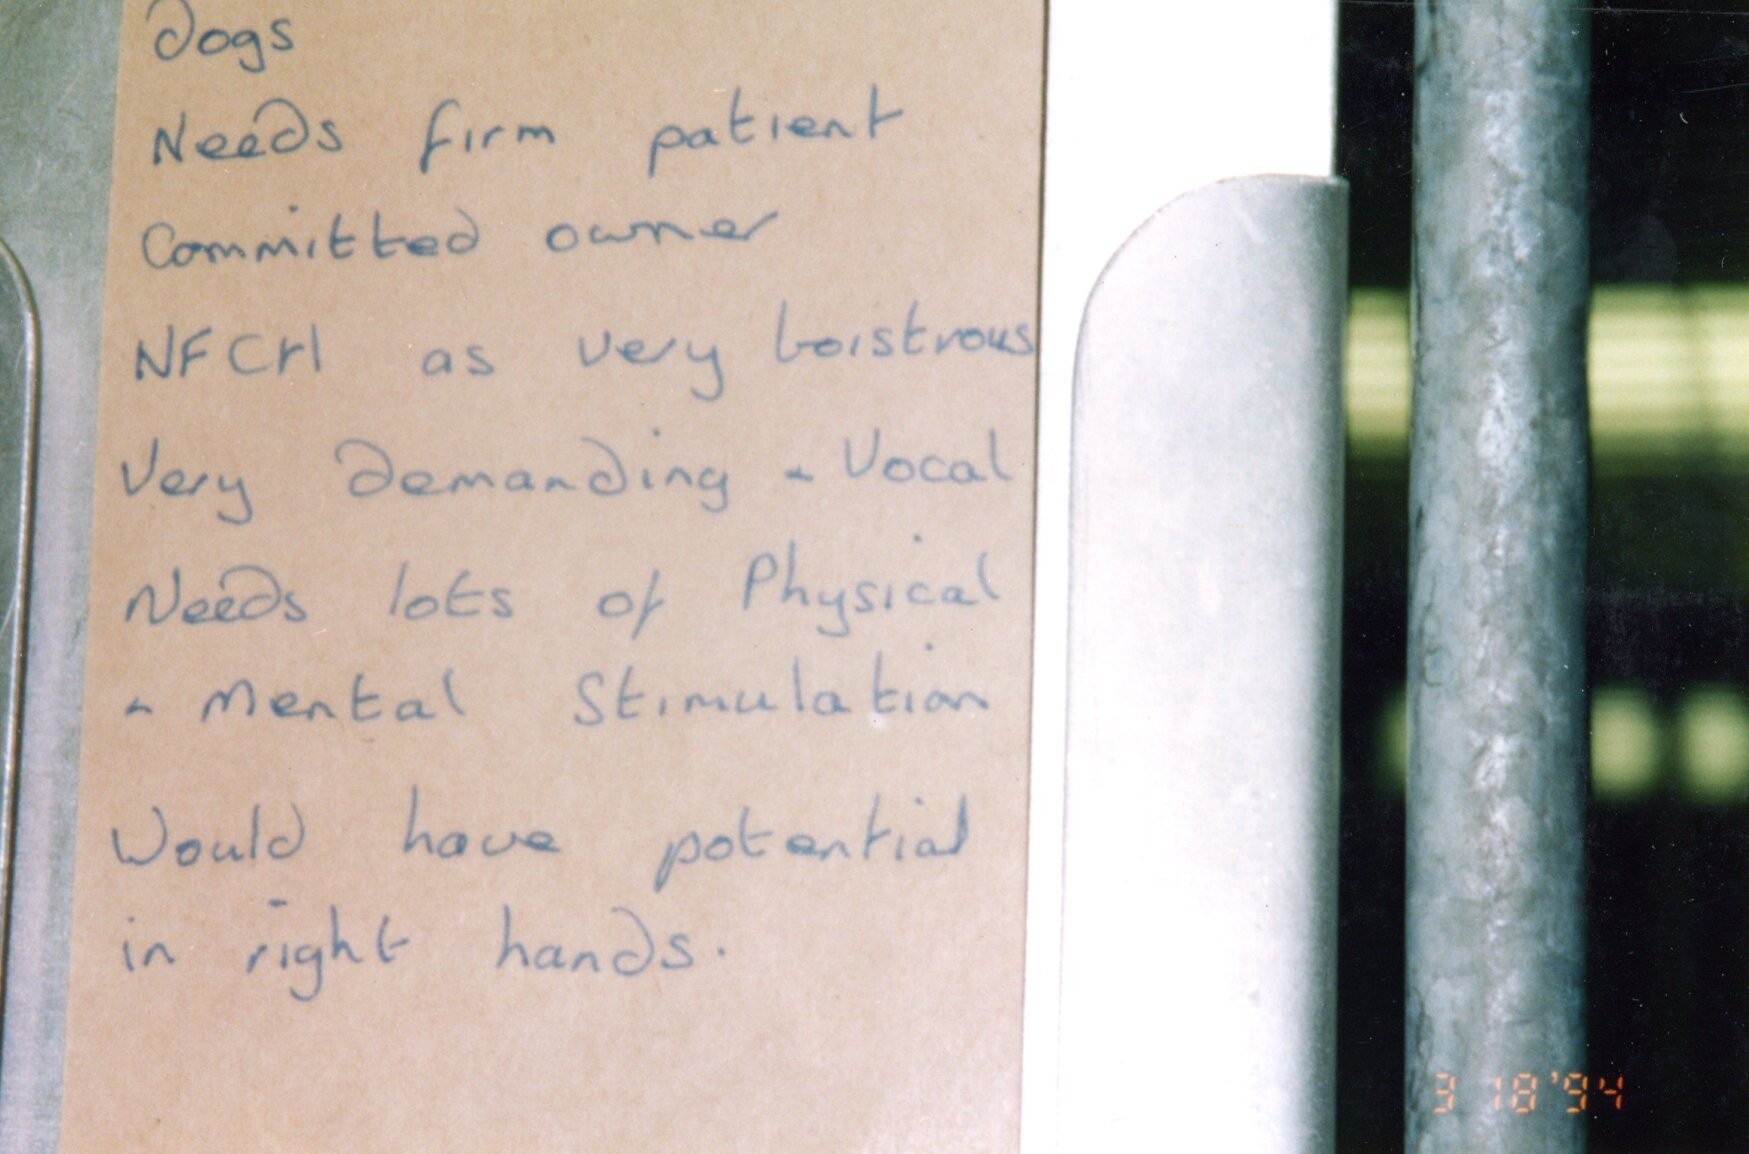 dogs
Needs firm patient
Committed owner
NFCH as very boistrous
Very demanding + Vocal
Needs lots of Physical
+ mental Stimulation
Would have potential
in right hands.
3 18 '94